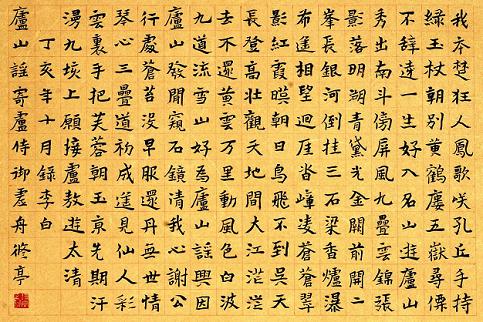 我本楚狂人鳳歌咲孔丘手持
緑玉杖朝別黄鶴廔五嶽尋僊
不辭遠一生好入名山遊廬山
秀出南斗傍屏風九疊雲錦張
影落明湖青黛光金闕前開二
峯長銀河倒挂三石梁香爐瀑
布遙相望迴崖沓嶂凌蒼蒼翠
影紅霞暎朝日鳥飛不到吳天
長登高壯觀天地間大江茫茫
去不還黄雲万里動風色白波
九道流雪山好為廬山謡興因
廬山發閒窺石鏡清我心謝公
行處蒼苔没早服還丹無世情
琴心三疊道初成遙見仙人彩
雲裏手把芙蓉朝玉京先期汗
漫九垓上願接盧敖遊太清
丁亥年十月録李白
廬山謡寄盧侍御虛舟脩亭